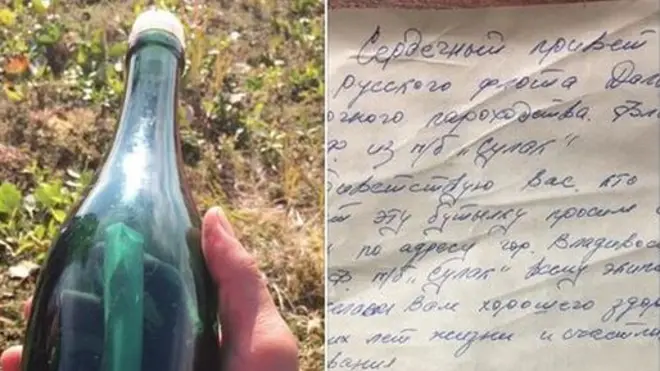 Сердечный привет
русского флота Дал
очного пароходства.
из т/б „Сулак“
ветствую Вас, кто
эту бутылку просим
по адресу гор. Владивос
т/б „Сулак“ всему экип
желаем Вам хорошего здор
их лет жизни и счастли
вания